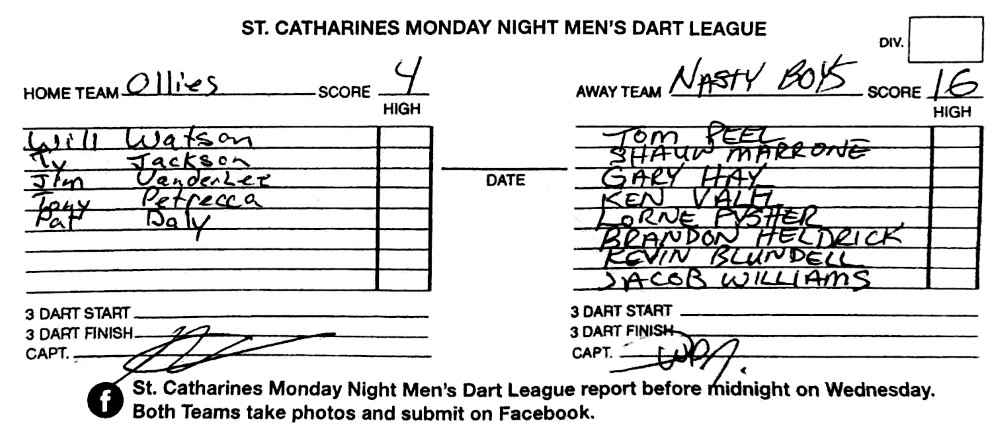 ST. CATHARINES MONDAY NIGHT MEN'S DART LEAGUE
DIV.
HOME TEAM Ollies SCORE 4
HIGH
Will Watson
Ty Jackson
Jim VanderLee
Tony Petrecca
Pat Daly
3 DART START
3 DART FINISH
CAPT.
DATE
AWAY TEAM NASTY BOYS SCORE 16
HIGH
TOM PEEL
SHAUN MARRONE
GARY HAY
KEN
LORNE PYSHER
BRANDON HELDRICK
KEVIN BLUNDELL
JACOB WILLIAMS
3 DART START
3 DART FINISH
CAPT.
f St. Catharines Monday Night Men's Dart League report before midnight on Wednesday.
Both Teams take photos and submit on Facebook.